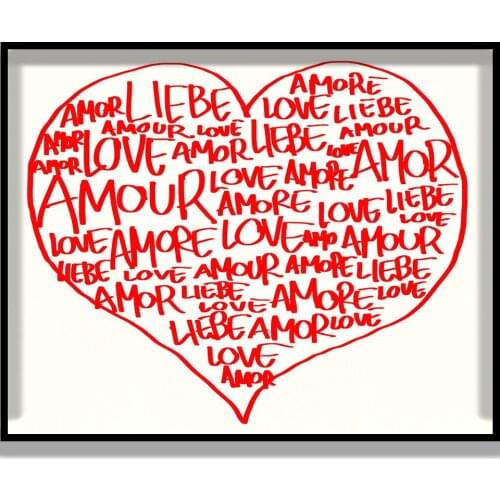 AMORE
AMOR LIEBE LOVE LIEBE
AMOUR LOVE LIEBE AMOUR
AMOR LOVE AMOR LOVE AMOR
AMOR LOVE AMORE
AMOUR AMORE LOVE LIEBE
LOVE
LOVE AMORE LOVE AMO AMOUR
LIEBE LOVE AMOUR AMORE LIEBE
AMOR LIEBE AMORE LOVE
LOVE
LIEBE AMOR LOVE
LOVE
AMOR